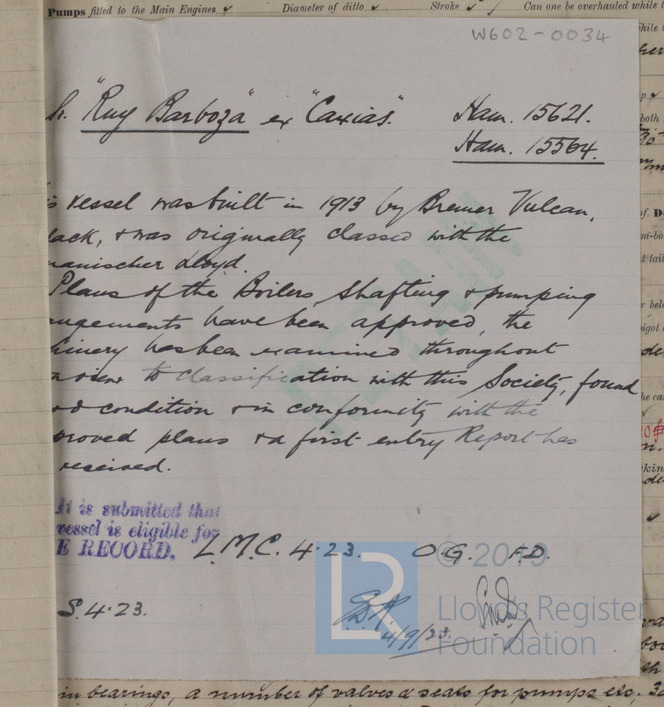 Pumps fitted to the Main Engines ✓ Diameter of ditto ✓ Stroke ✓ Can one be overhauled while
W602-0034
"Ruy Barboza" ex "Caxias". Ham. 15621.
Ham. 15564.
vessel was built in 1913 by Bremer Vulcan,
ack, & was originally classed with the
manischer Lloyd.
Plans of the Boilers, Shafting & pumping
ngements have been approved, the
hinery has been examined throughout
a view to classification with this Society, found
condition & in conformity with the
proved plans & a first entry Report has
received.
It is submitted that
vessel is eligible for
E RECORD. L.M.C. 4.23. O.G. F.D.
S. 4.23.
4/9/23
© 2019
LR
Lloyd's Register
Foundation
in bearings, a number of valves & seats for pumps etc.